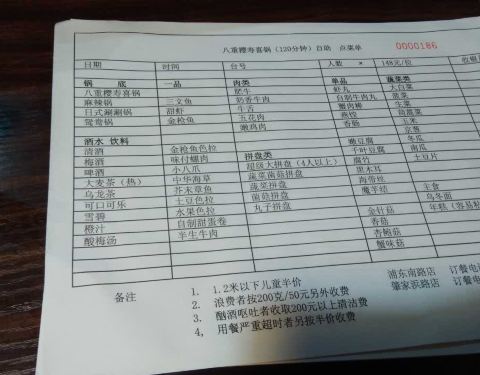 八重樱寿喜锅 (120分钟) 自助 点菜单
0000186
日期 时间 台号 人数 × 148元/位
锅 底 一品 肉类 单品 蔬菜类
八重樱寿喜锅 肥牛 虾丸 大白菜
麻辣锅 三文鱼 奶香牛肉 自制牛肉丸 菠菜
日式涮涮锅 甜虾 牛舌 蟹肉棒 生菜
鸳鸯锅 金枪鱼 五花肉 燕饺 茼蒿菜
嫩鸡肉 香肠 玉米
京葱
酒水 饮料
清酒 金枪鱼色拉 嫩豆腐 冬瓜
梅酒 味付螺肉 拼盘类 千叶豆腐 南瓜
啤酒 小八爪 超级大拼盘 (4人以上) 腐竹 土豆片
大麦茶 (热) 中华海草 蔬菜拼盘 黑木耳
乌龙茶 芥末章鱼 菌菇拼盘 海带丝
可口可乐 土豆色拉 丸子拼盘 魔芋结 主食
雪碧 水果色拉 乌冬面
橙汁 自制甜蛋卷 金针菇
酸梅汤 半生牛肉 香菇
杏鲍菇
蟹味菇
备注 1. 1.2米以下儿童半价
2. 浪费者按200克/50元另外收费
3. 酗酒呕吐者收取200元以上清洁费
4, 用餐严重超时者另按半价收费
浦东南路店 订餐电
肇家浜路店 订餐电